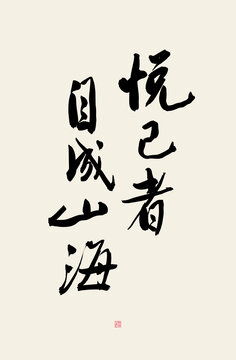 悦己者
自成山海